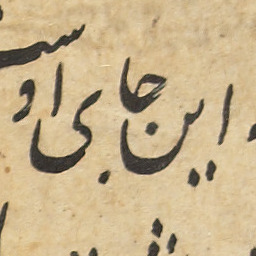 این جای اوست